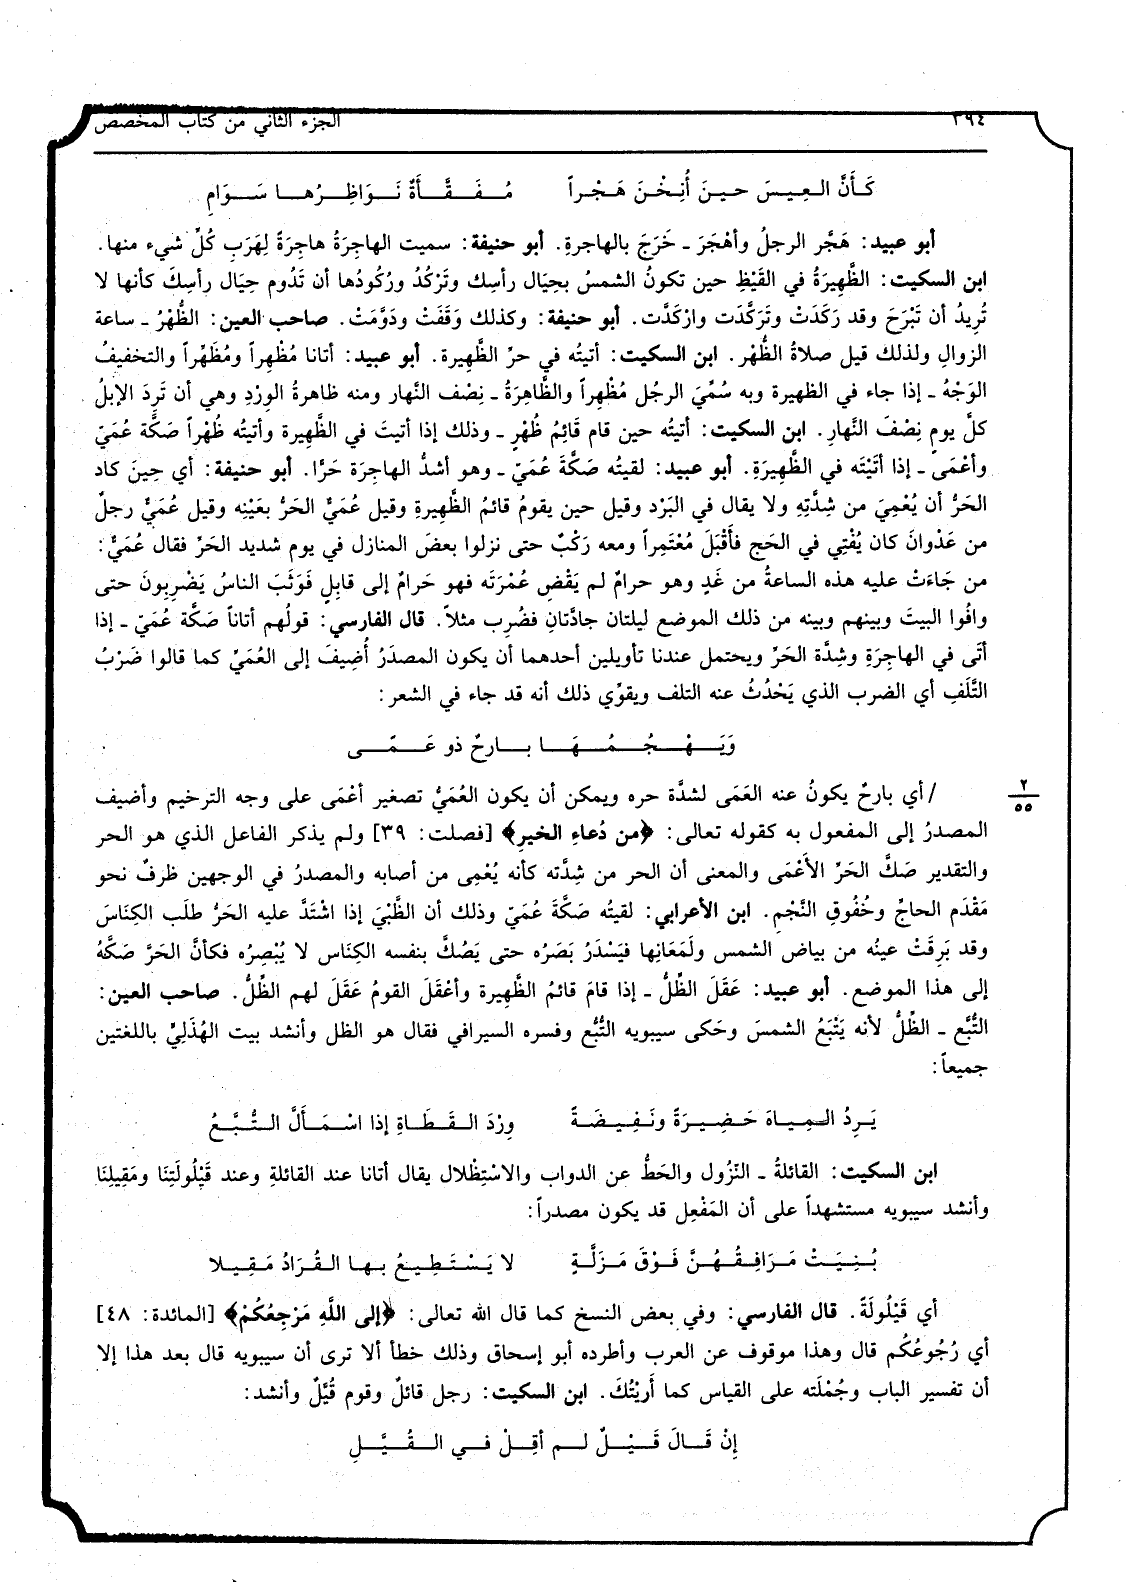 ٣٩٤ الجزء الثاني من كتاب المخصص
كَأَنَّ العِيسَ حينَ أُنِخْنَ هَجْراً مُفَقَّأَةٌ نَوَاظِرُها سَوَامِ
أبو عبيد: هَجَّر الرجلُ وأَهْجَرَ ـ خَرَجَ بالهاجرةِ. أبو حنيفة: سميت الهاجِرَةُ هاجِرَةً لِهَرَبِ كُلِّ شيء منها.
ابن السكيت: الظَّهِيرَةُ في القَيْظِ حين تكونُ الشمسُ بحِيَال رأسِك وتَرْكُدُ ورُكُودُها أن تَدُوم حِيَال رأسِكَ كأنها لا
تُرِيدُ أن تَبْرَحَ وقد رَكَدَتْ وتَرَكَّدَت وارْكَدَّت. أبو حنيفة: وكذلك وَقَفَتْ ودَوَّمَتْ. صاحب العين: الظُّهْرُ ـ ساعة
الزوالِ ولذلك قيل صلاةُ الظُّهْر. ابن السكيت: أتيتُه في حرِّ الظَّهِيرة. أبو عبيد: أتانا مُظْهِراً ومُظَهِّراً والتخفيفُ
الوَجْهُ ـ إذا جاء في الظهيرة وبه سُمِّيَ الرجُل مُظْهِراً والظَّاهِرَةُ ـ نِصْف النَّهار ومنه ظاهرةُ الوِرْدِ وهي أن تَرِدَ الإبلُ
كلَّ يومٍ نِصْفَ النَّهارِ. ابن السكيت: أتيتُه حين قام قَائِمُ ظُهْرٍ ـ وذلك إذا أتيتَ في الظَّهِيرة وأتيتُه ظُهْراً صَكَّة عُمَيّ
وأَعْمَى ـ إذا أَتَيْتَه في الظَّهِيرَةِ. أبو عبيد: لقيتُه صَكَّةَ عُمَيّ ـ وهو أشدُّ الهاجِرَة حَرًّا. أبو حنيفة: أي حِينَ كاد
الحَرُّ أن يُعْمِيَ من شِدَّتِهِ ولا يقال في البَرْد وقيل حين يقومُ قائمُ الظَّهِيرةِ وقيل عُمَيٌّ الحَرُّ بعَيْنِه وقيل عُمَيٌّ رجلٌ
من عَدْوانَ كان يُفْتِي في الحَج فأَقْبَلَ مُعْتَمِراً ومعه رَكْبٌ حتى نزلوا بعضَ المنازل في يوم شديد الحَرِّ فقال عُمَيٌّ:
من جَاءَتْ عليه هذه الساعةُ من غَدٍ وهو حرامٌ لم يَقْضِ عُمْرَتَه فهو حَرامٌ إلى قابِلٍ فَوَثَبَ الناسُ يَضْرِبونَ حتى
وافُوا البيتَ وبينهم وبينه من ذلك الموضع ليلتان جادَّتانِ فضُرِب مثلاً. قال الفارسي: قولُهم أتاناً صَكَّة عُمَيّ ـ إذا
أتَى في الهاجِرَةِ وشِدَّة الحَرِّ ويحتمل عندنا تأويلين أحدهما أن يكون المصدَرُ أُضِيفَ إلى العُمَيِّ كما قالوا ضَرْبُ
التَّلَفِ أي الضرب الذي يَحْدُثُ عنه التلف ويقوِّي ذلك أنه قد جاء في الشعر:
وَيَهْجُمُهَا بارحٌ ذو عَمَّى
/ أي بارحٌ يكونُ عنه العَمَى لشدَّة حره ويمكن أن يكون العُمَيُّ تصغير أَعْمَى على وجه الترخيم وأضيف
٢
٥٥
المصدرُ إلى المفعول به كقوله تعالى: ﴿من دُعاءِ الخيرِ﴾ [فصلت: ٣٩] ولم يذكر الفاعل الذي هو الحر
والتقدير صَكَّ الحَرِّ الأَعْمَى والمعنى أن الحر من شِدَّته كأنه يُعْمِى من أصابه والمصدرُ في الوجهين ظرفٌ نحو
مَقْدَم الحاجِّ وخُفُوقِ النَّجْمِ. ابن الأعرابي: لقيتُه صَكَّةَ عُمَيّ وذلك أن الظَّبْيَ إذا اشْتَدَّ عليه الحَرُّ طلَب الكِنَاسَ
وقد بَرِقَتْ عينُه من بياض الشمس ولَمَعَانِها فيَسْدَرُ بَصَرُه حتى يَصُكَّ بنفسه الكِنَاس لا يُبْصِرُه فكأنَّ الحَرَّ صَكَّهُ
إلى هذا الموضع. أبو عبيد: عَقَلَ الظِّلُّ ـ إذا قامَ قائمُ الظَّهِيرة وأَعْقَلَ القومُ عَقَلَ لهم الظلُّ. صاحب العين:
التُّبَّع ـ الظِّلُّ لأنه يَتْبَعُ الشمسَ وحَكى سيبويه التُّبُّع وفسره السيرافي فقال هو الظل وأنشد بيت الهُذَلِيِّ باللغتين
جميعاً:
يَرِدُ المِياهَ حَضِيرَةً ونَفِيضَةً وِرْدَ القَطَاةِ إذا اسْمَأَلَّ التُّبَّعُ
ابن السكيت: القائلةُ ـ النّزُول والحَطُّ عن الدواب والاسْتِظْلال يقال أتانا عند القائلةِ وعند قَيْلُولَتِنَا ومَقِيلِنَا
وأنشد سيبويه مستشهداً على أن المَفْعِل قد يكون مصدراً:
بُنِيَتْ مَرَافِقُهُنَّ فَوْقَ مَزَلَّةٍ لا يَسْتَطِيعُ بها القُرَادُ مَقِيلا
أي قَيْلُولَةً. قال الفارسي: وفي بعض النسخ كما قال الله تعالى: ﴿إلى اللَّهِ مَرْجِعُكُمْ﴾ [المائدة: ٤٨]
أي رُجُوعُكُم قال وهذا موقوف عن العرب وأطرده أبو إسحاق وذلك خطأ ألا ترى أن سيبويه قال بعد هذا إلا
أن تفسير الباب وجُمْلَته على القياس كما أَرَيْتُكَ. ابن السكيت: رجل قائلٌ وقوم قُيَّلٌ وأنشد:
إنْ قَالَ قَيْلٌ لم أَقِلْ في القُيَّلِ